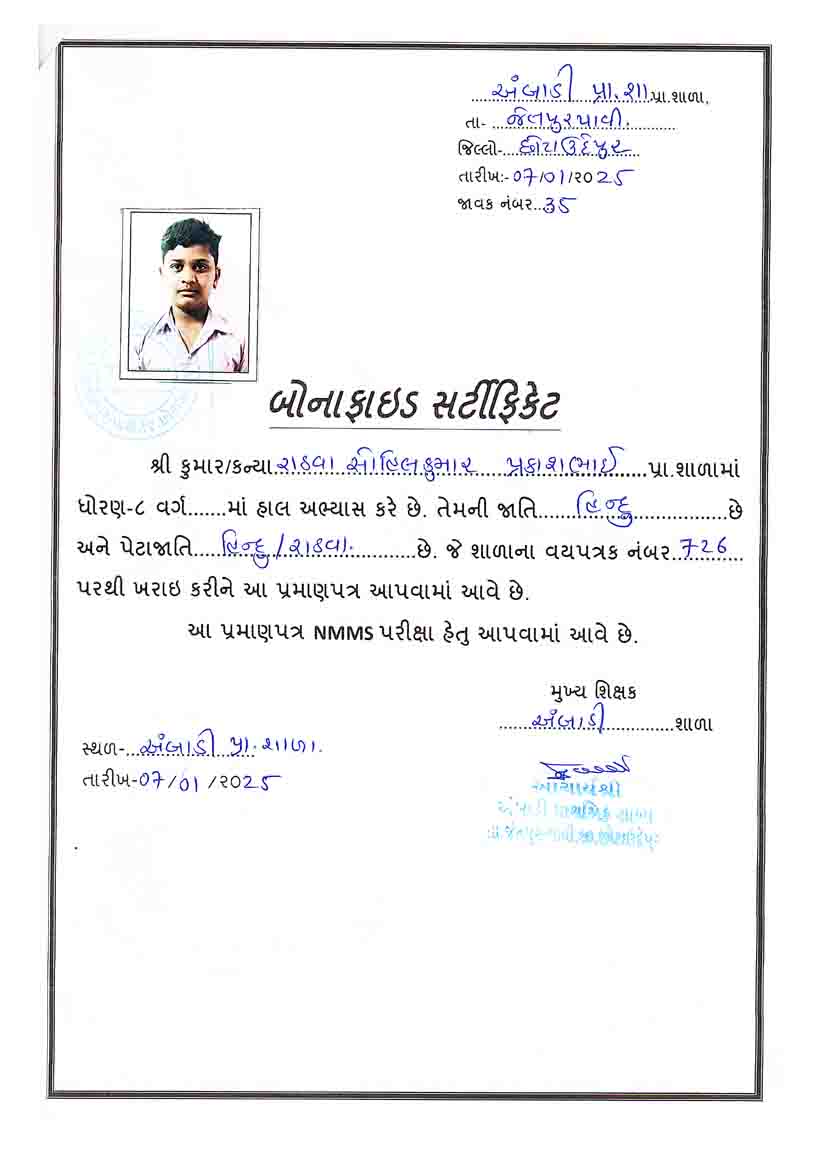 અંબાડી પ્રા.શા.પ્રા.શાળા.
તા- જેતપુરપાવી.
જિલ્લો- છોટાઉદેપુર
તારીખ:- 07/01/૨૦25
જાવક નંબર...35
બોનાફાઇડ સર્ટીફિકેટ
શ્રી કુમાર/કન્યા રાઠવા સોહિલકુમાર પ્રકાશભાઈ......પ્રા.શાળામાં
ધોરણ-૮ વર્ગ.......માં હાલ અભ્યાસ કરે છે. તેમની જાતિ......હિન્દુ..................છે
અને પેટાજાતિ....હિન્દુ/રાઠવા............છે. જે શાળાના વયપત્રક નંબર..726
પરથી ખરાઇ કરીને આ પ્રમાણપત્ર આપવામાં આવે છે.
આ પ્રમાણપત્ર NMMS પરીક્ષા હેતુ આપવામાં આવે છે.
મુખ્ય શિક્ષક
......અંબાડી..............શાળા
સ્થળ-...અંબાડી પ્રા. શાળા.
તારીખ-07/01/૨૦25
આચાર્યશ્રી
અંબાડી પ્રાથમિક શાળા